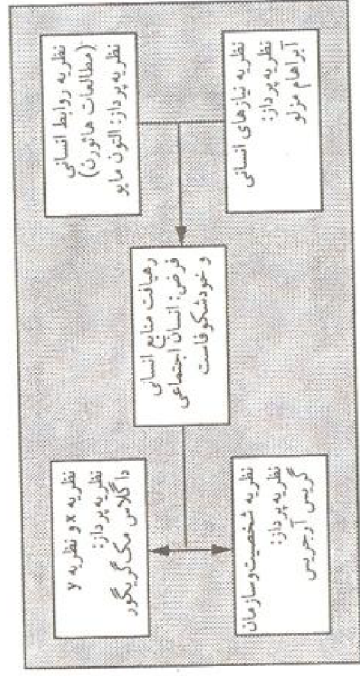 نظریه روابط انسانی
(مطالعات هاثورن)
نظریه پرداز: التون مایو
نظریه نیازهای انسانی
نظریه پرداز:
آبراهام مزلو
رهیافت منابع انسانی
فرض: انسان اجتماعی
و خودشکوفاست
نظریه x و نظریه y
نظریه پرداز:
داگلاس مک گریگور
نظریه شخصیت و سازمان
نظریه پرداز:
گریس آرجریس